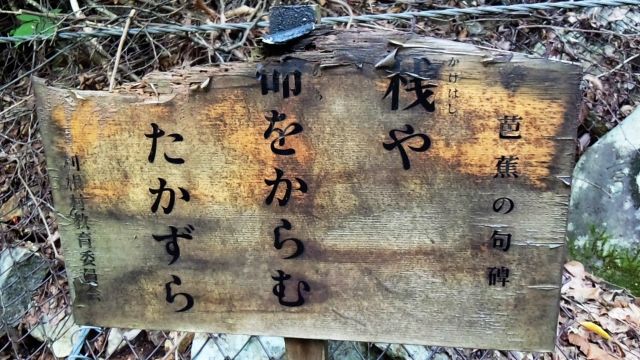 芭蕉の句碑
かけはし
桟や
命をからむ
たかずら
村教育委員会